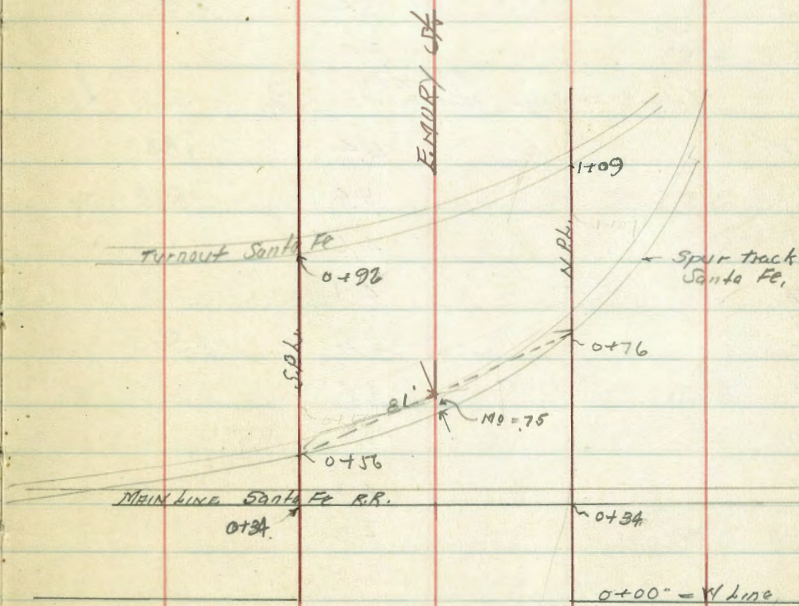 EMORY St
1+09
Turnout Santa Fe
0+92
N.P.L.
Spur track
Santa Fe,
S.P.L.
0+76
81'
Mo = .75
0+56
MAIN LINE Santa Fe R.R.
0+34
0+34
0+00 = W Line